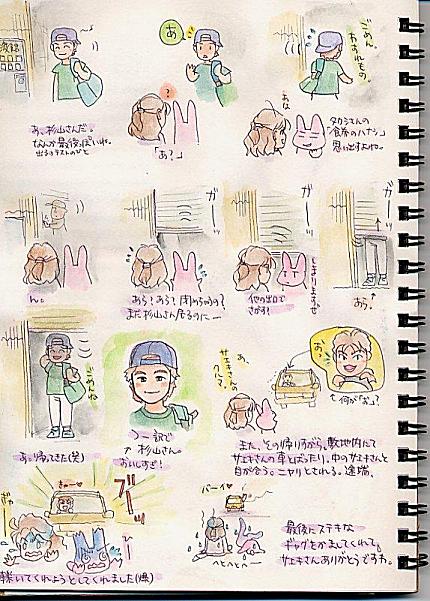 ごめん、
わすれもの。
あ
?
あ、杉山さんだ。
なんか最後っぽいね。
「あ?」
タカラさんの
「食券のハナシ」
思い出すよね。
ん。
ガーッ
あら?あらら?閉めちゃうの?
まだ杉山さん居るのにー
ガーッ
しまりますっせ
他の出口で
さがす!
ガーッ
あら。
ごめんね
あ、帰ってきた(笑)
杉山さん
おいしすぎ!
あ、
サエキさんの
クルマ。
おっ
↑何が「お」?
また、その帰りすがら、敷地内にて
サエキさんの車とばったり。中のサエキさんと
目が合う。ニヤリとされる。途端、
きゃー♥
ブーッ
轢いてくれようとしてくれました(爆)
バーイ♥
へとへとへー
最後にステキな
ギャグをかましてくれて、
サエキさんありがとうですわ。